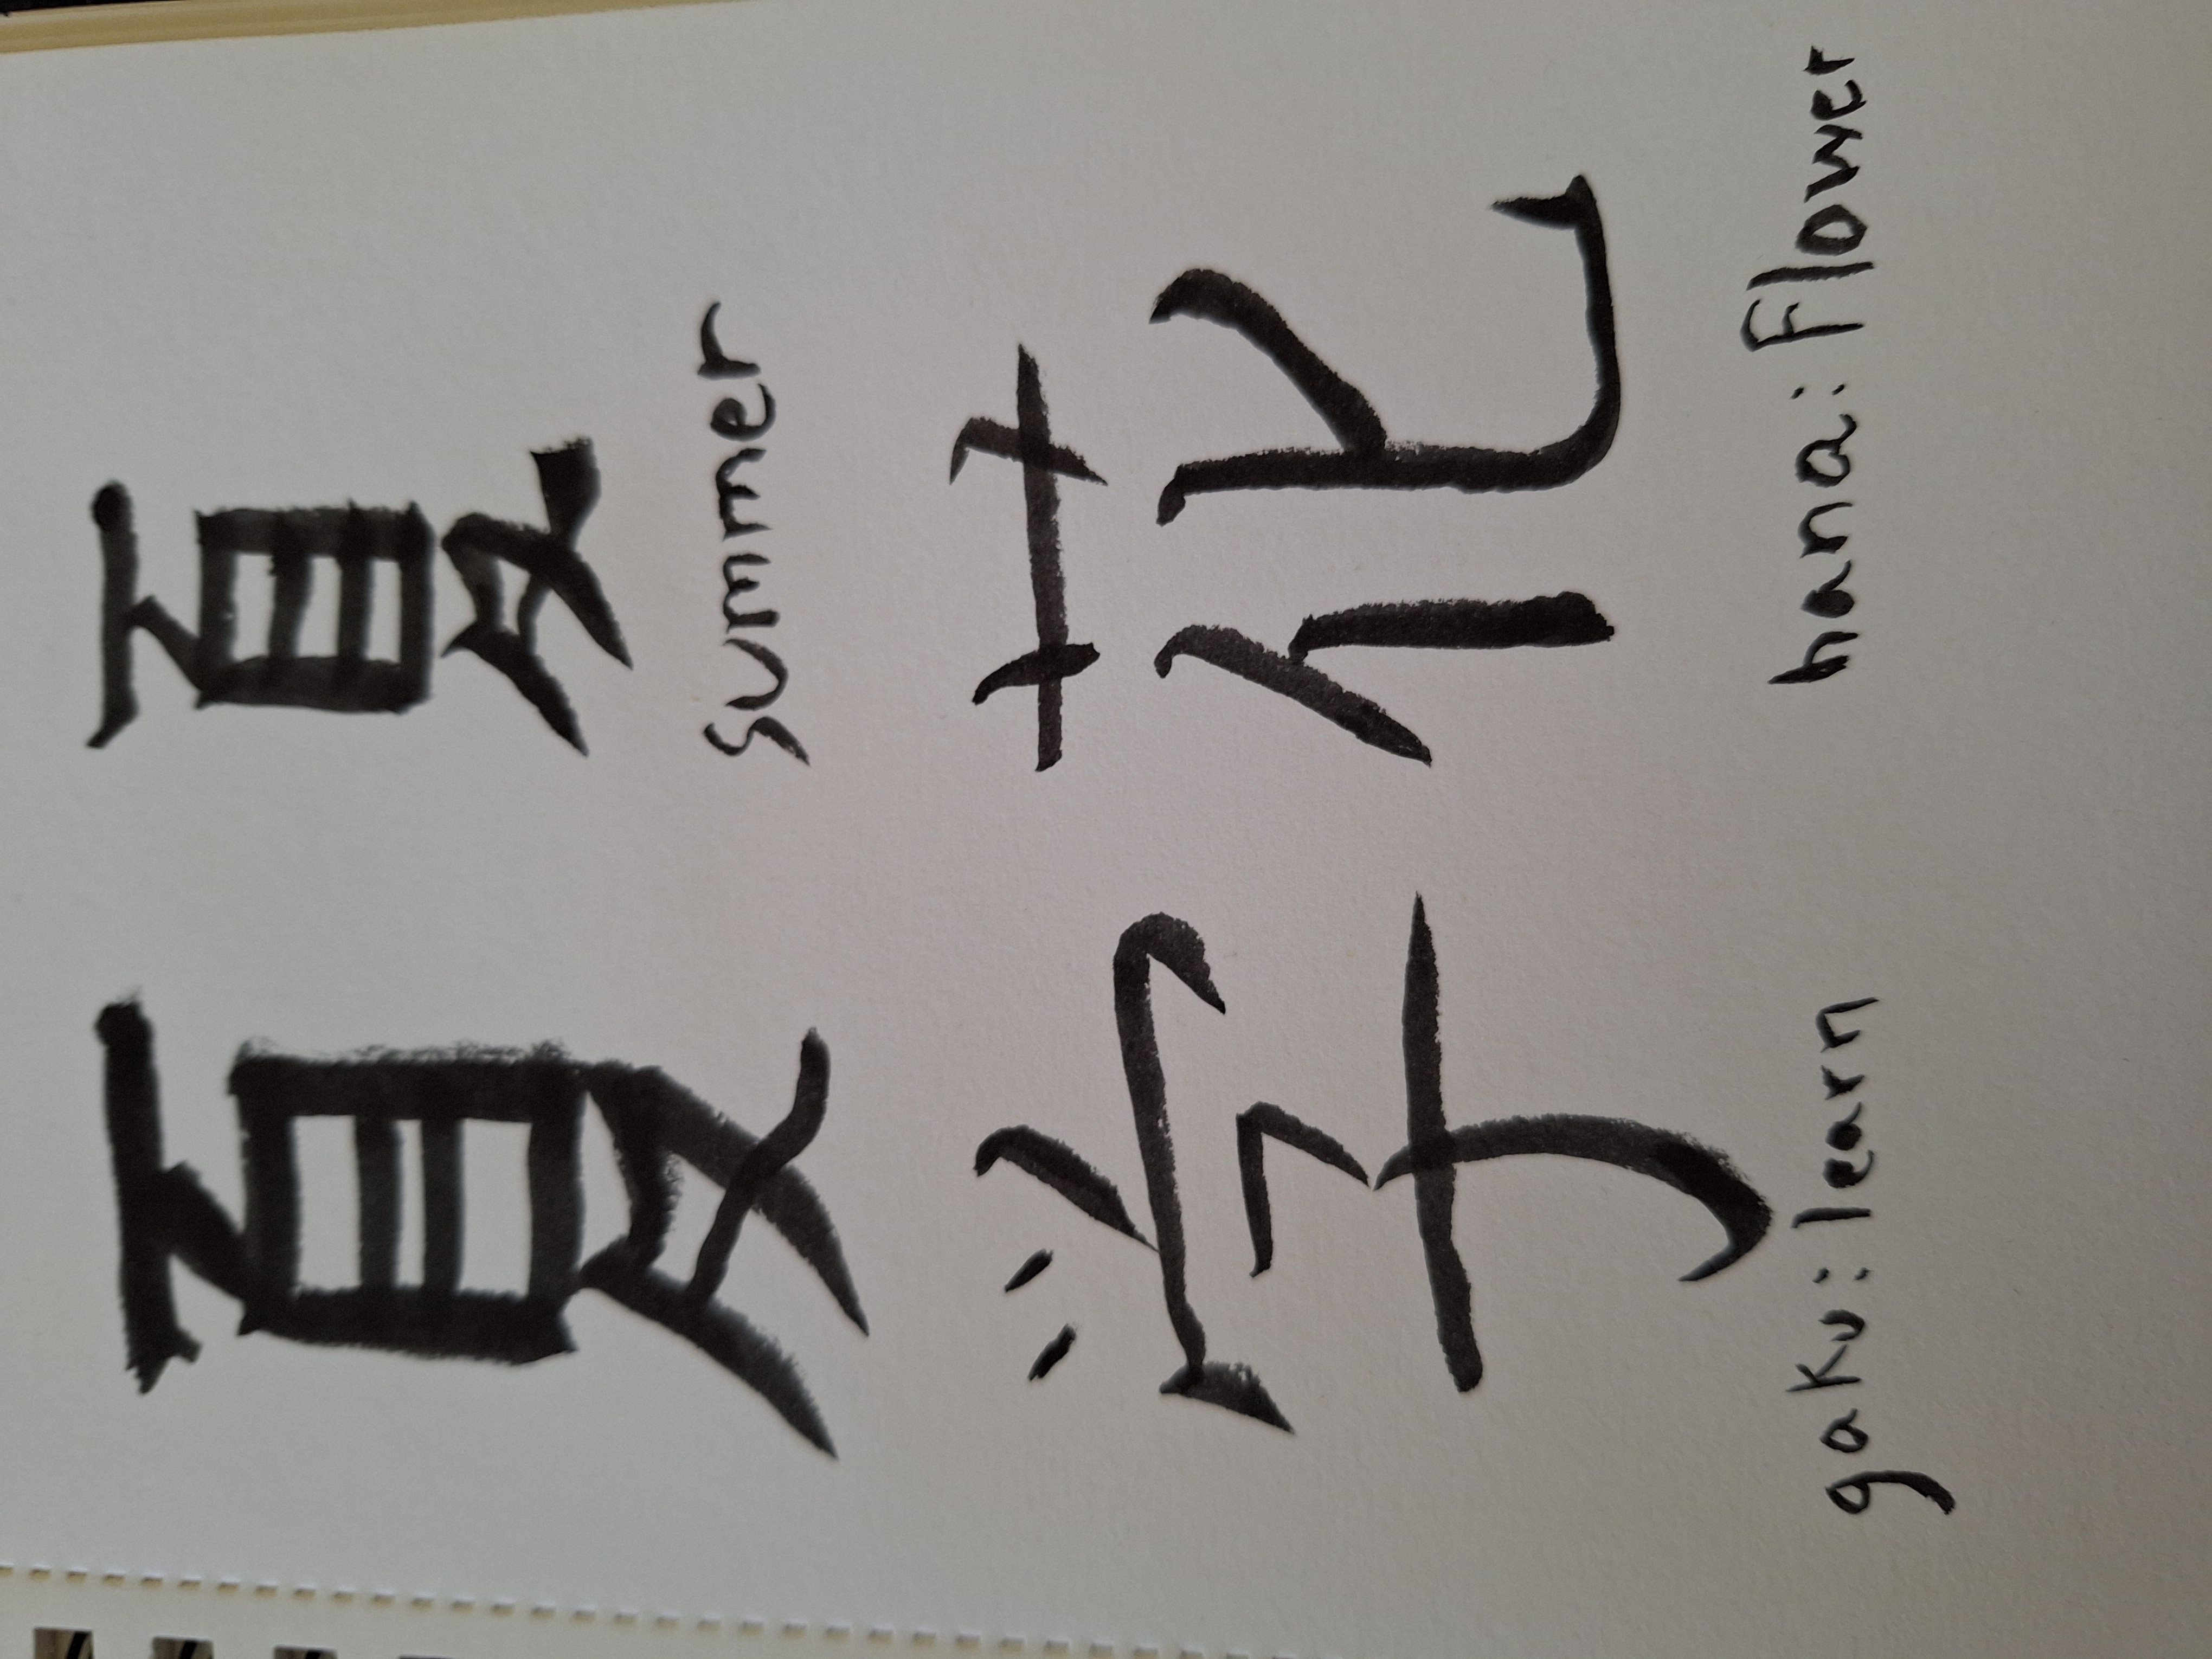 夏 夏
summer
学 花
gaku: learn hana: Flower